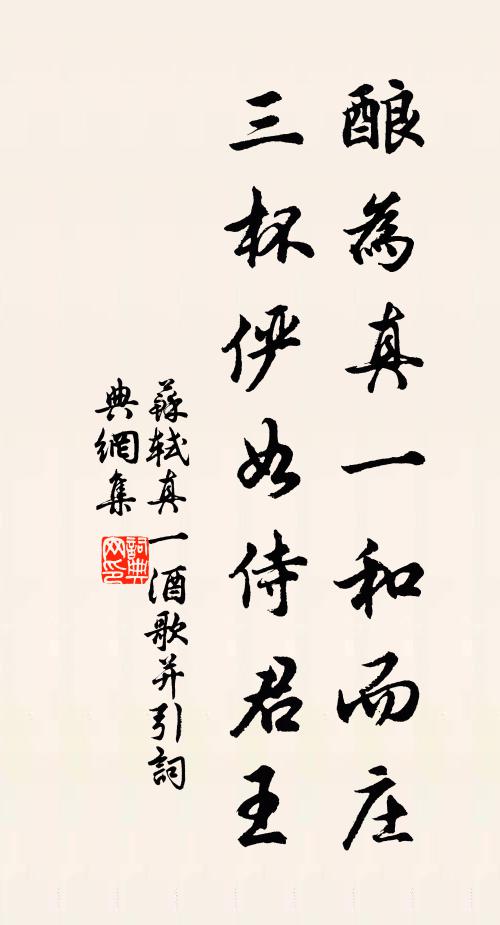 酿為真一和而庄
三杯俨如侍君王
蘇軾真一酒歌并引詞
典網集
詞典网印